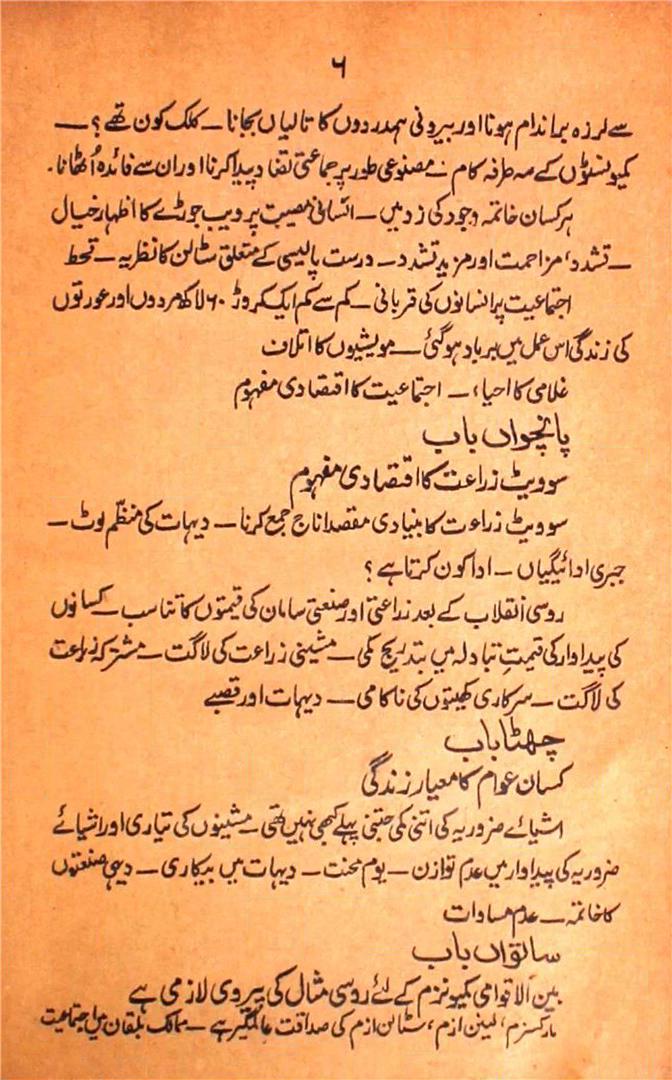 ۶
سے لرزہ براندام ہونا اور بیرونی ہمدردوں کا تالیاں بجانا ــ کلک کون تھے؟ ــ
کمیونسٹوں کے سہ طرفہ کام ــ مصنوعی طور پر جماعتی تضاد پیدا کرنا اور ان سے فائدہ اُٹھانا۔
ہر کسان خاتمہ وجود کی زد میں ــ انسانی مصیبت پر ویب جوڑے کا اظہار خیال
ــ تشدد، مزاحمت اور مزید تشدد ــ درست پالیسی کے متعلق سٹالن کا نظریہ ــ قحط
اجتماعیت پر انسانوں کی قربانی ــ کم سے کم ایک کروڑ ۶۰ لاکھ مردوں اور عورتوں
کی زندگی اس عمل میں برباد ہوگئی ــ مویشیوں کا اتلاف
غلامی کا احیاء ــ اجتماعیت کا اقتصادی مفہوم
پانچواں باب
سوویٹ زراعت کا اقتصادی مفہوم
سوویٹ زراعت کا بنیادی مقصد اناج جمع کرنا ــ دیہات کی منظّم لوٹ ــ
جبری ادائیگیاں ــ ادا کون کرتا ہے؟
روسی انقلاب کے بعد زراعتی اور صنعتی سامان کی قیمتوں کا تناسب ــ کسانوں
کی پیداوار کی قیمتِ تبادلہ میں بتدریج کمی ــ مشینی زراعت کی لاگت ــ مشترکہ زراعت
کی لاگت ــ سرکاری کھیتوں کی ناکامی ــ دیہات اور قصبے
چھٹا باب
کسان عوام کا معیار زندگی
اشیائے ضروریہ کی اتنی کمی جتنی پہلے کبھی نہیں تھی ــ مشینوں کی تیاری اور اشیائے
ضروریہ کی پیداوار میں عدم توازن ــ یوم محنت ــ دیہات میں بیکاری ــ دیہی صنعتوں
کا خاتمہ ــ عدم مساوات
ساتواں باب
بین الاقوامی کمیونزم کے لئے روسی مثال کی پیروی لازمی ہے
مارکسزم، لینن ازم، سٹالن ازم کی صداقت عالمگیر ہے ــ ممالک بلقان میں اجتماعیت